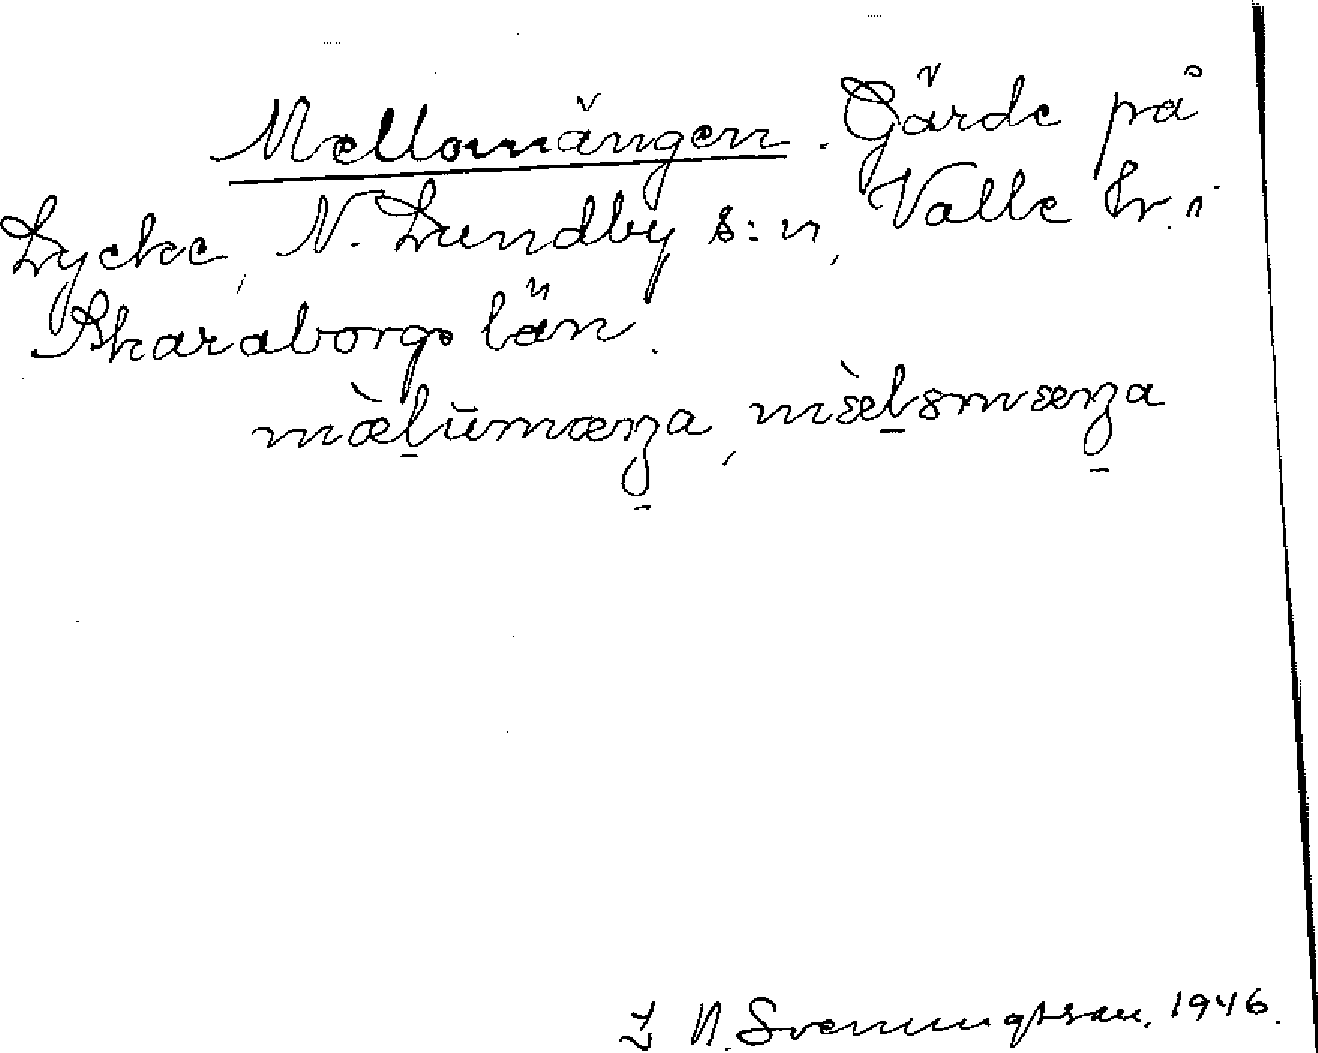 Mellomängen. Gärde på
Lycke, N. Lundby s:n, Valle hr. i
Skaraborgs län.
mæ̀lūmæŋa, mæ̀lsmæŋa
N. Svenungsson. 1946.